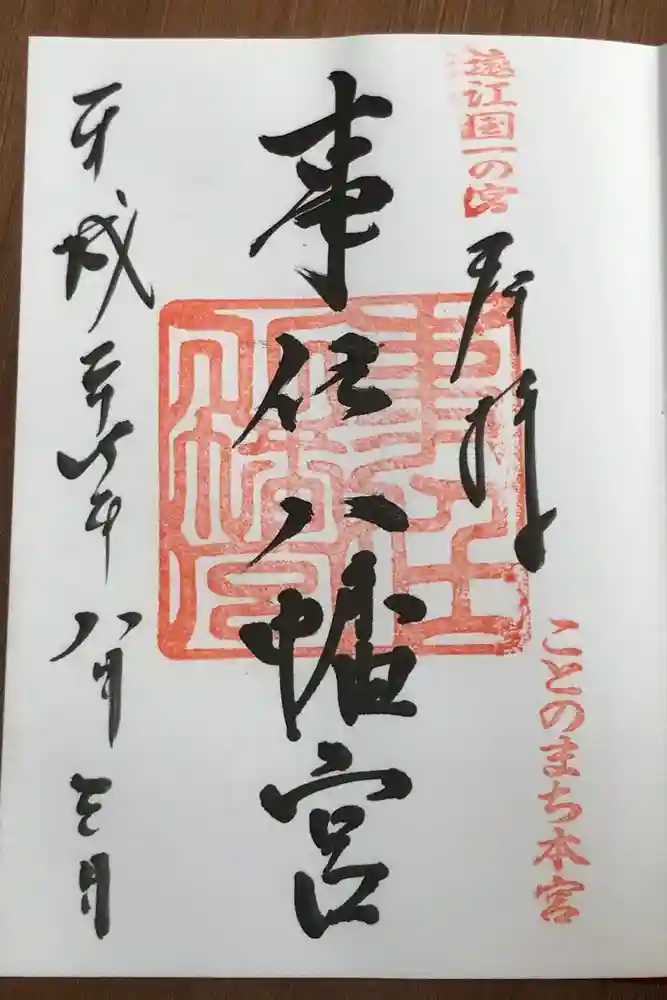 遠江国一の宮
奉拝
ことのまち本宮
事任八幡宮
平成二十年八月三日